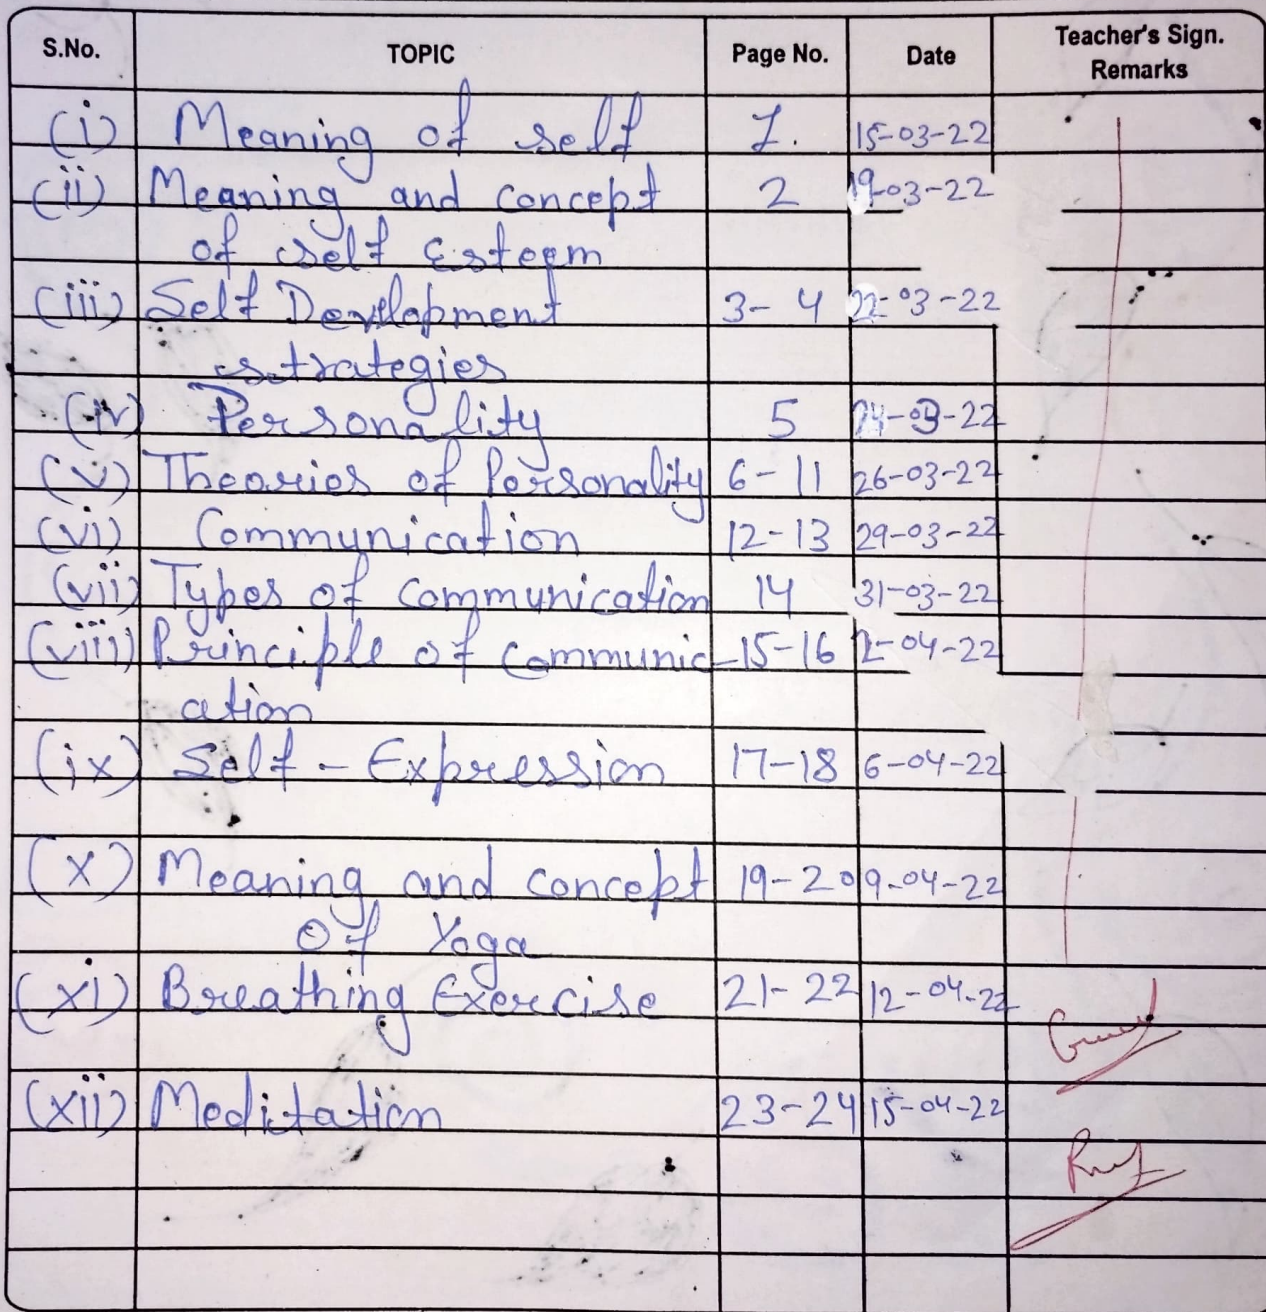 S.No. TOPIC Page No. Date Teacher's Sign. Remarks
(i) Meaning of self 1. 15-03-22
(ii) Meaning and concept 2 19-03-22
of self Esteem
(iii) Self Development 3-4 22-03-22
strategies
(iv) Personality 5 24-03-22
(v) Theories of Personality 6-11 26-03-22
(vi) Communication 12-13 29-03-22
(vii) Types of Communication 14 31-03-22
(viii) Principle of Communic- 15-16 2-04-22
ation
(ix) Self - Expression 17-18 6-04-22
(x) Meaning and concept 19-20 9-04-22
of Yoga
(xi) Breathing Exercise 21-22 12-04-22
(xii) Meditation 23-24 15-04-22